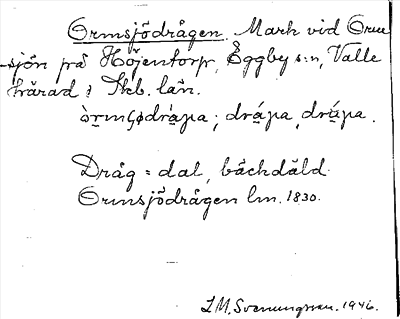 Ormsjödrågen. Mark vid Orm
-sjön på Höjentorp, Eggby s:n, Valle
härad i Skb. län.
drápa, drápa.
Dråg = dal, bäckdäld.
Ormsjödrågen lm. 1830.
L.M. Svenungsson. 1946.